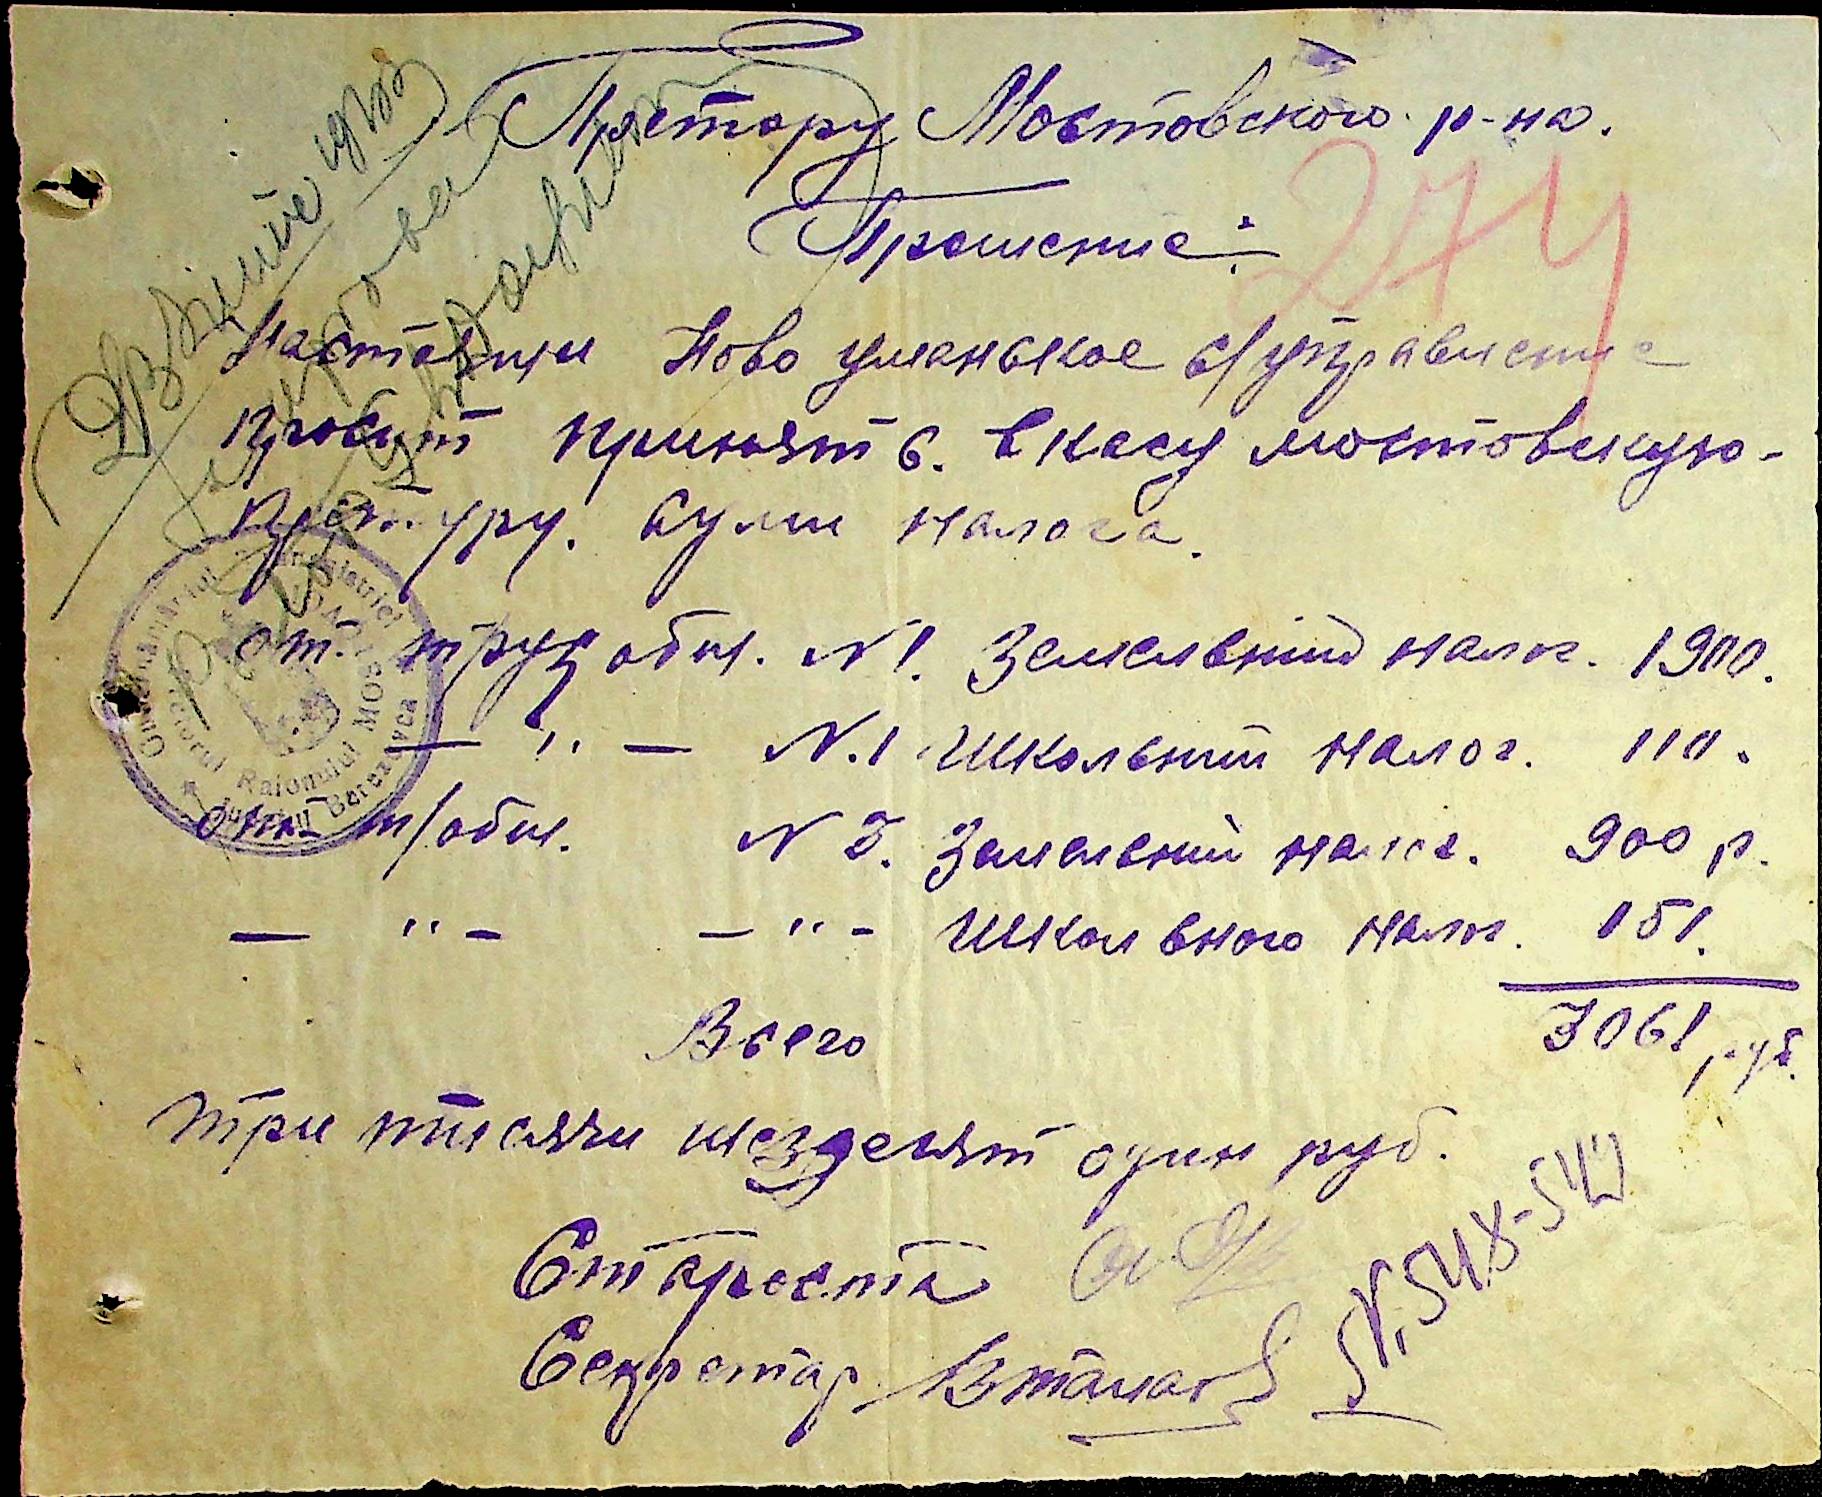 Претору Мостовского р-на.
Прошение:
274
Настоящи Ново уманьское с/управление
просит принять. в касу мостовскую-
претуру. суми налога.
от. труд общ. N 1. Земельний налог. 1900.
— " — N.1 Школьний налог. 110.
от т/общ. N 3. Земельний налог. 900 р.
— " — — " — Школьного налог. 151.
Всего 3061 руб.
три тисячи шездесят один руб.
Староста
Секретар
N, 548-549
Raionului MOSTOVOI
Județul Berezovca